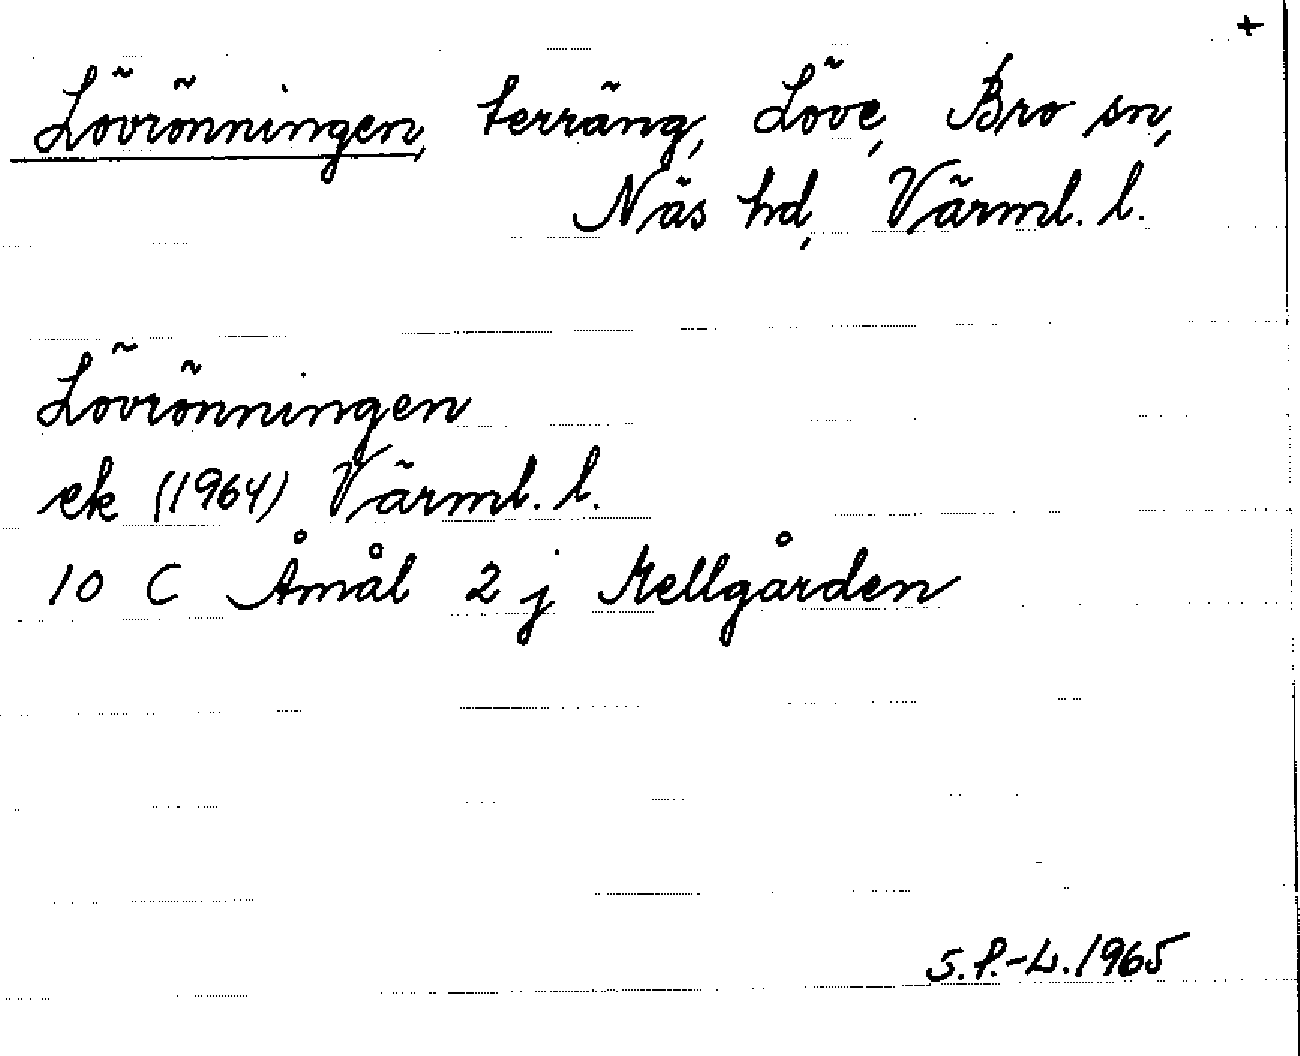 +
Lövrönningen, terräng, Löve, Bro sn,
Näs hd, Värml. l.
Lövrönningen
ek (1964) Värml. l.
10 C Åmål 2 j Mellgården
S.P.-L. 1965